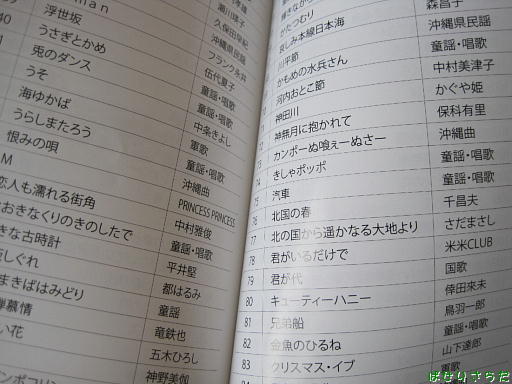 man
浮世坂
瀬川瑛子
うさぎとかめ
久保田早紀
兎のダンス
沖縄県民謡
うそ
フランク永井
海ゆかば
伍代夏子
うらしまたろう
童謡・唱歌
恨みの唄
童謡・唱歌
M
中条きよし
恋人も濡れる街角
軍歌
おおきなくりのきのしたで
童謡・唱歌
きな古時計
沖縄曲
しぐれ
PRINCESS PRINCESS
まきばはみどり
中村雅俊
弾慕情
童謡・唱歌
い花
平井堅
都はるみ
童謡
竜鉄也
五木ひろし
神野美伽
かたつむり
森昌子
哀しみ本線日本海
沖縄県民謡
川平節
童謡・唱歌
かもめの水兵さん
中村美津子
河内おとこ節
かぐや姫
神田川
保科有里
神無月に抱かれて
沖縄曲
73 カンポーぬ喰ぇーぬさー
童謡・唱歌
74 きしゃポッポ
童謡・唱歌
75 汽車
千昌夫
76 北国の春
さだまさし
77 北の国から遥かなる大地より
米米CLUB
78 君がいるだけで
国歌
79 君が代
倖田來未
80 キューティーハニー
鳥羽一郎
81 兄弟船
童謡・唱歌
82 金魚のひるね
山下達郎
83 クリスマス・イブ
軍歌
84
ぱなりさらだ